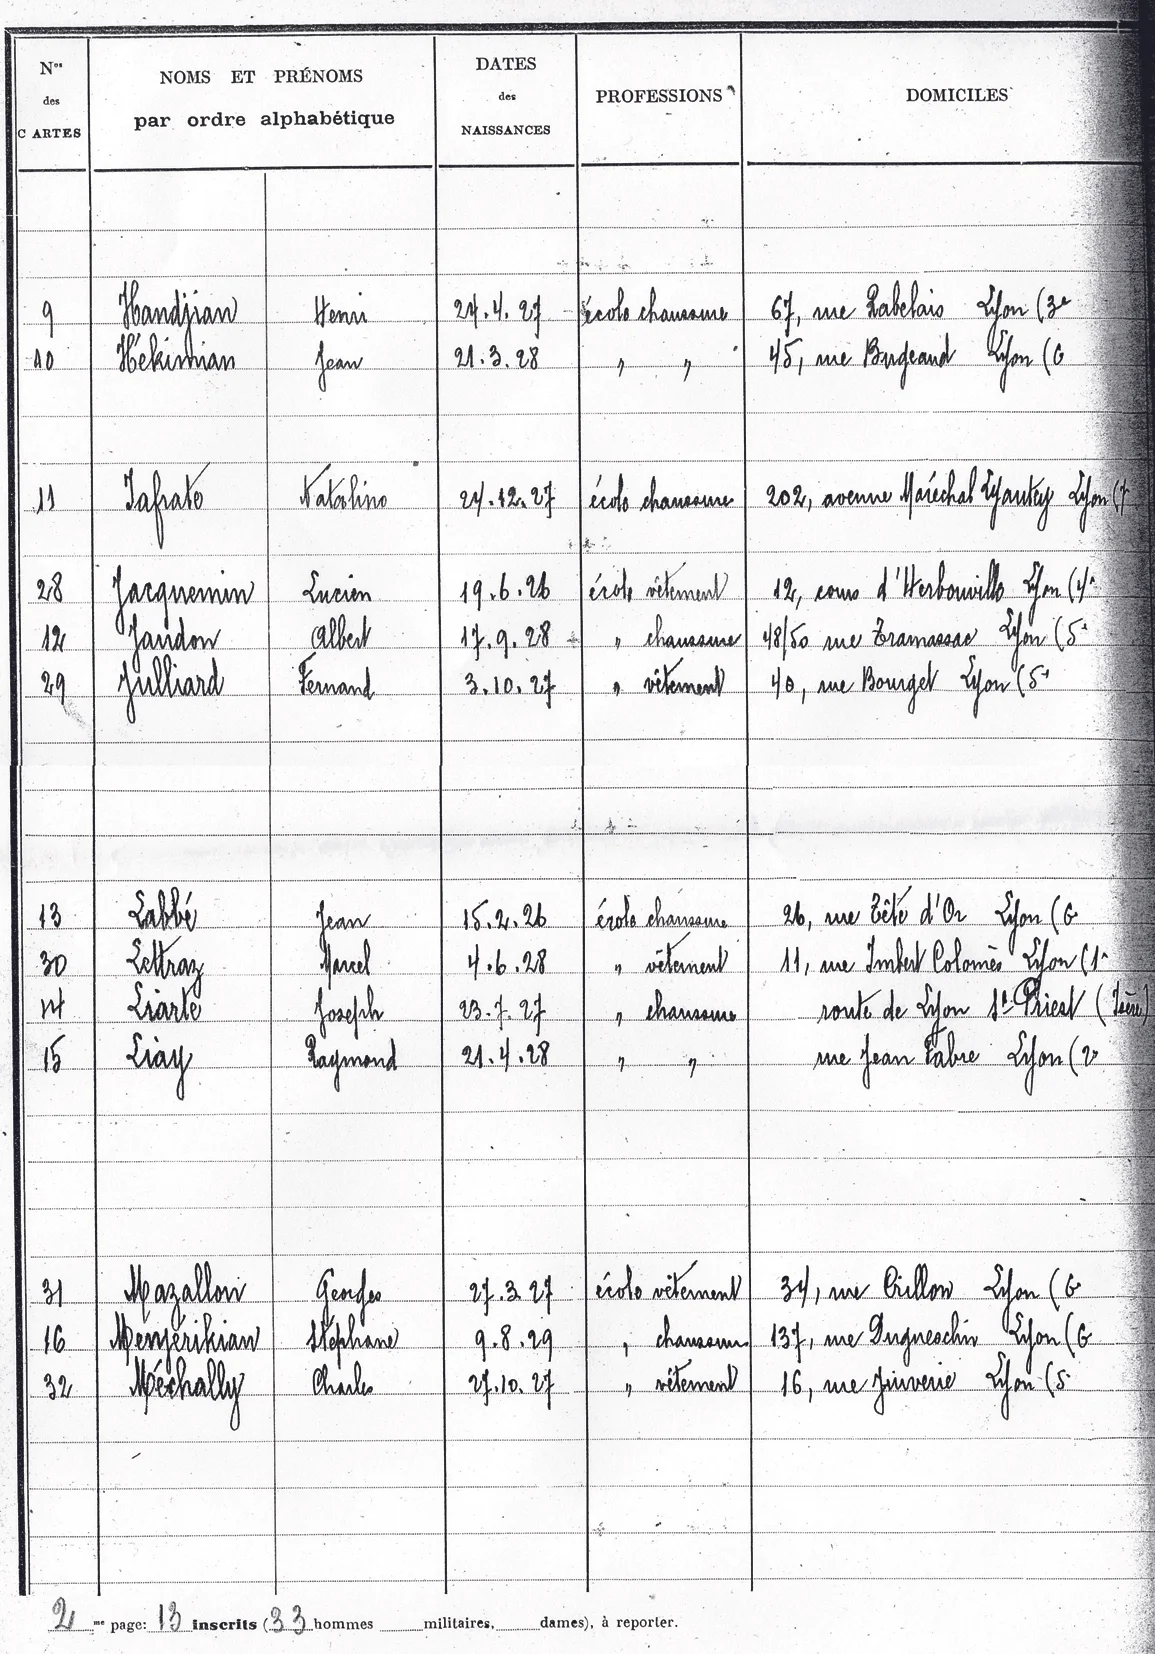 Nos des CARTES NOMS ET PRÉNOMS par ordre alphabétique DATES des NAISSANCES PROFESSIONS DOMICILES
9 Handjian Henri 24.4.27 école chaussure 67, rue Rabelais Lyon (3e
10 Hékimian Jean 21.3.28 " " 45, rue Bugeaud Lyon (6
11 Iafrate Natalino 24.12.27 école chaussure 202, avenue Maréchal Lyautey Lyon (7
28 Jacquemin Lucien 19.6.26 école vêtement 12, cours d'Herbouville Lyon (4e
12 Jandon Albert 17.9.28 " chaussure 48/50 rue Tramassac Lyon (5e
29 Julliard Fernand 3.10.27 " vêtement 40, rue Bourget Lyon (5e
13 Labbé Jean 15.2.26 école chaussure 26, rue Tête d'Or Lyon (6
30 Lettraz Marcel 4.6.28 " vêtement 11, rue Imbert Colomès Lyon (1e
14 Liarte Joseph 23.7.27 " chaussure route de Lyon St Priest (Isère)
15 Liay Raymond 21.4.28 " " rue Jean Fabre Lyon (2e
31 Mazallon Georges 27.3.27 école vêtement 34, rue Crillon Lyon (6
16 Menzérikian Stéphane 9.8.29 " chaussure 137, rue Dugueschin Lyon (6
32 Méchally Charles 27.10.27 " vêtement 16, rue Juiverie Lyon (5
2 me page: 13 inscrits (33 hommes militaires, dames), à reporter.